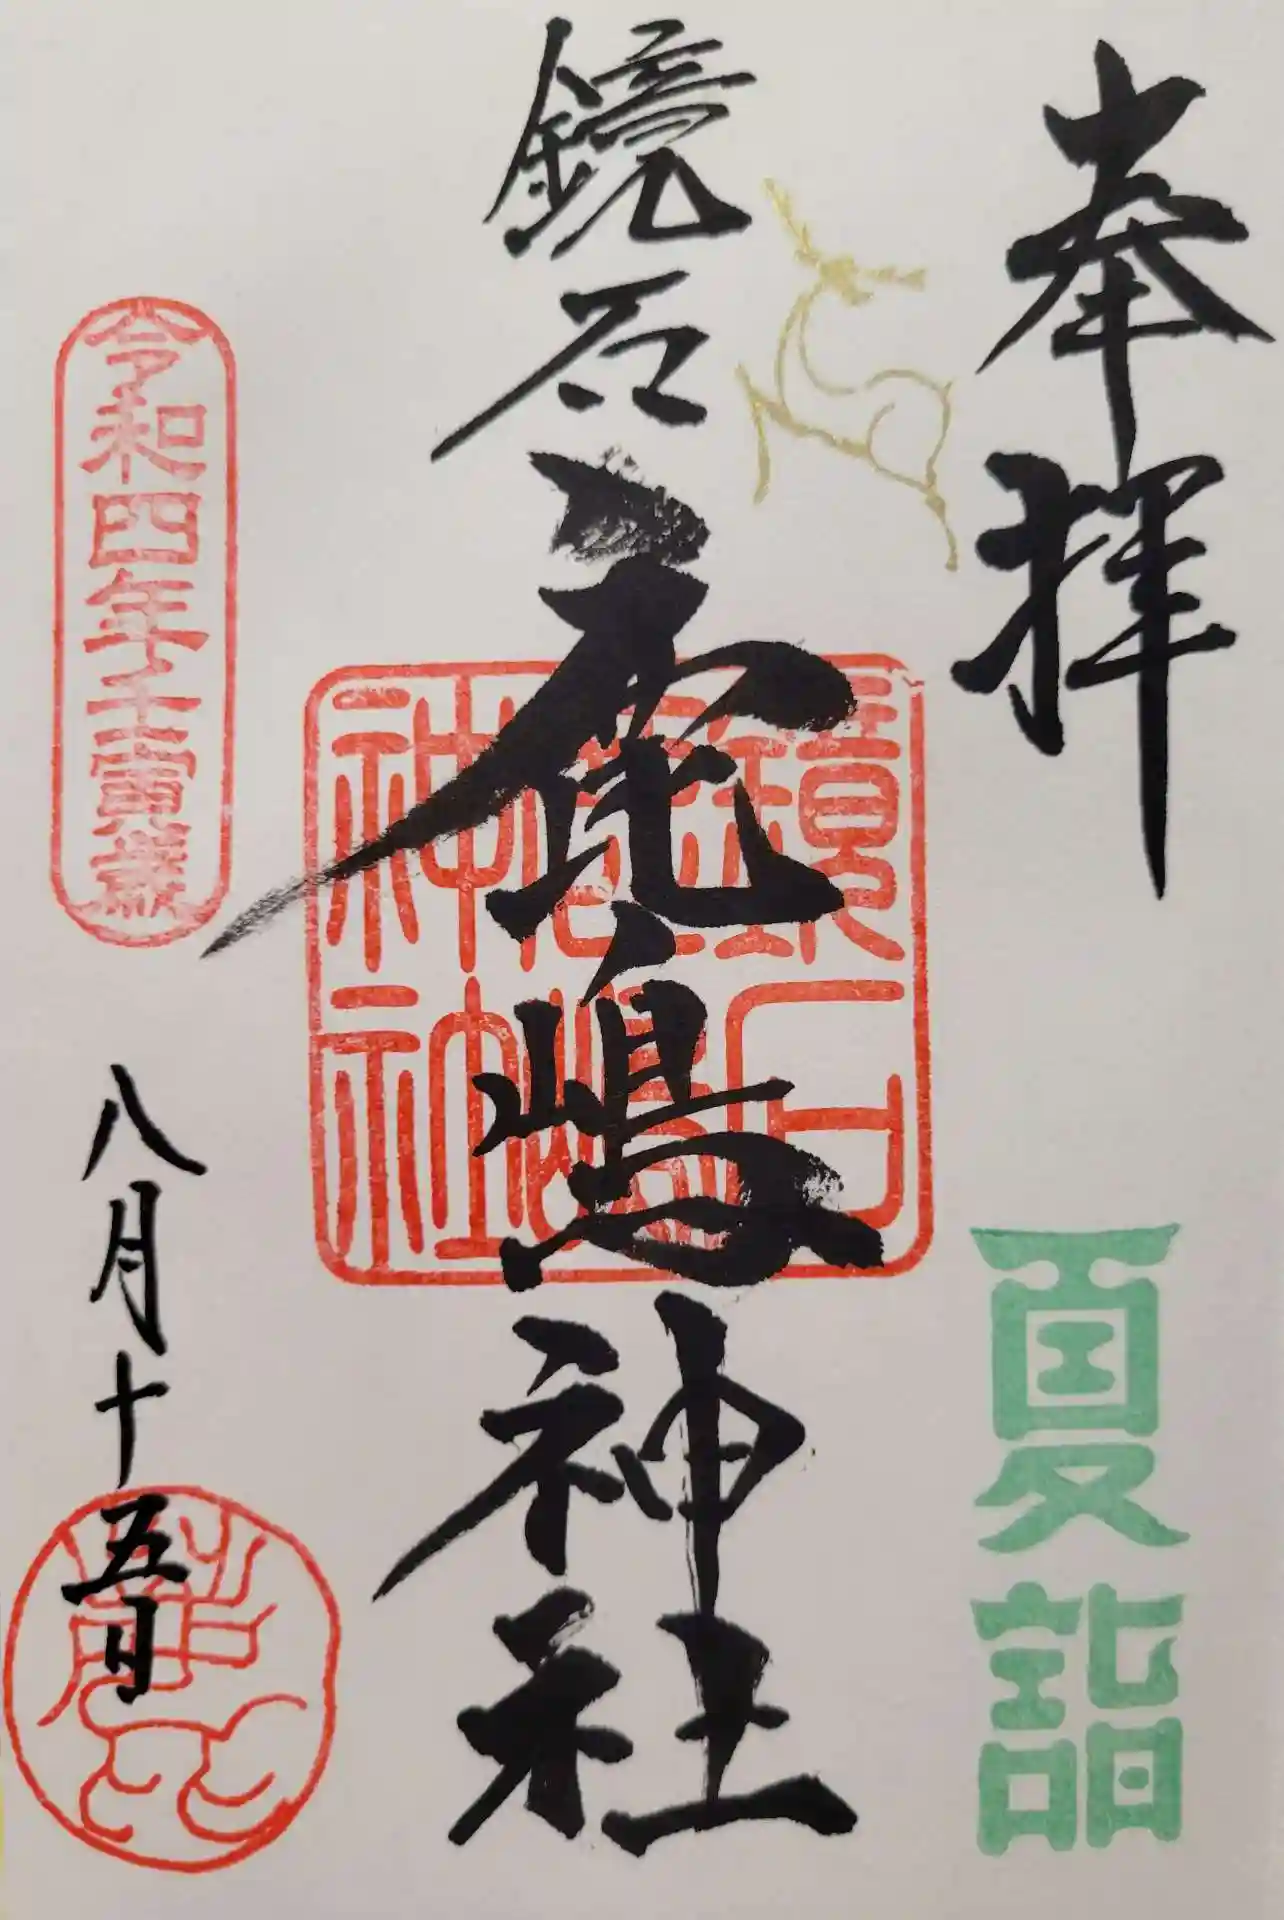 奉拝
夏詣
鏡石鹿嶋神社
鏡石
鹿嶋
神社
令和四年壬寅歳
八月十五日